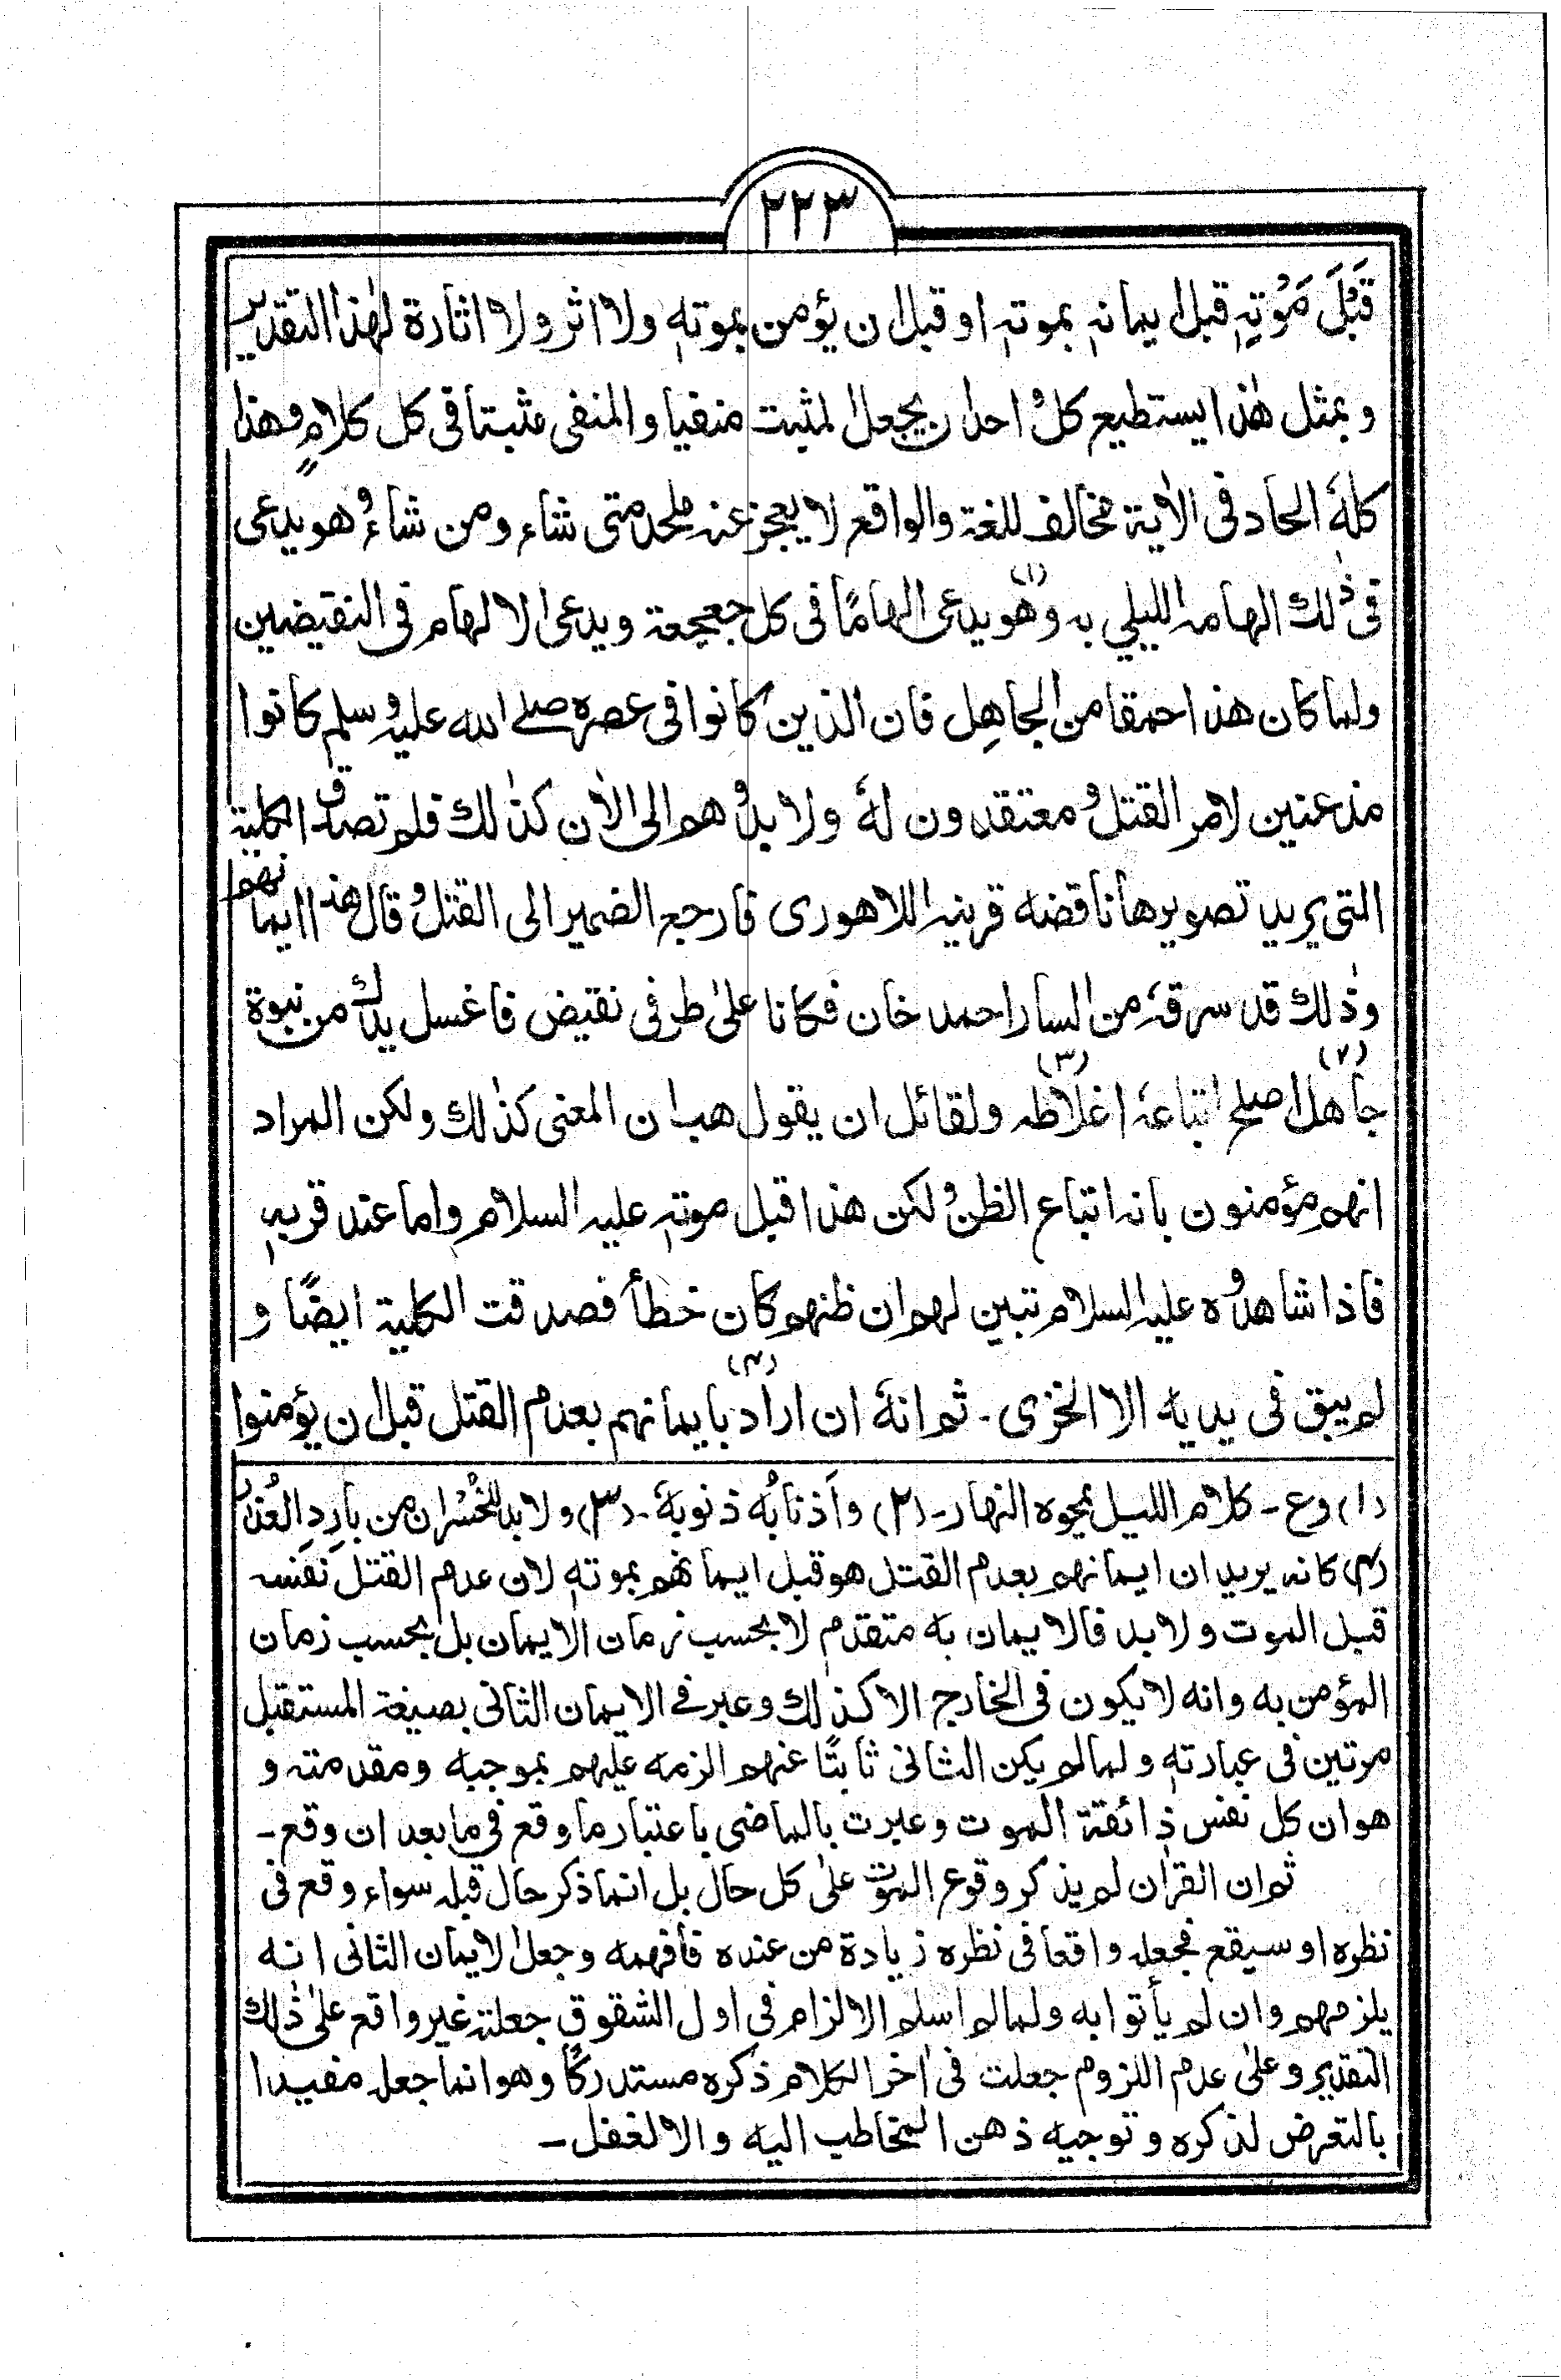 ٢٢٣
قَبْلَ مَوْتِهٖ قبل ايمانہٖ بموتہٖ او قبل ان يؤمن بموتهٖ ولا اثر ولا اثارة لهٰذا التقدير
و بمثل هٰذا يستطيع كل احد ان يجعل المثبت منفيا و المنفى مثبتا فى كل كلامٍ و هذا
كلهٗ الحاد فى الاٰية مخالف للغة والواقع لا يعجز عنہ ملحد متى شاء ومن شاء و هو يدعى
فى ذٰلك الهامہ الليلي به وهو (١) يدعى الهامًا فى كل جعجعة ويدعى الالهام فى النقيضين
ولما كان هذا حمقا من الجاهِل فان الذين كانوا فى عصره صلے الله عليہ وسلم كانوا
مذعنين لامر القتل و معتقدون لهٗ ولا بد و هم الى الاٰن كذٰلك فلم تصدق الكلية
التى يريد تصويرها ناقضه قرينہ اللاهورى فارجع الضمير الى القتل و قال هذا ايمانهم
وذٰلك قد سرقہٗ من السيد احمد خان فكانا علىٰ طرفى نقيض فاغسل يدك من نبوة
جاهل (٢) اصلح اتباعہٗ اغلاطہ (٣) ولقائل ان يقول هب ان المعنى كذٰلك ولكن المراد
انهم مؤمنون بانہ اتباع الظن و لكن هذا قبل موتہٖ عليہ السلام واما عند قربهٖ
فاذا شاهدوه عليہ السلام تبين لهم ان ظنهم كان خطأ فصدقت الكلية ايضًا و
لم يبق فى يديه الا الخزى ۔ ثم انهٗ ان اراد (٤) بايمانهم بعدم القتل قبل ان يؤمنوا
(١) و ع ۔ كلام الليل يمحوه النهار ۔ (٢) و اَذنابُه ذنوبهٗ ۔ (٣) ولا بد للخُسْران من بارِدِ العُذر
(٤) كانہ يريد ان ايمانهم بعدم القتل هو قبل ايمانهم بموتهٖ لان عدم القتل نفسہ
قبل الموت ولابد فالايمان به متقدم لا بحسب زمان الايمان بل بحسب زمان
المؤمن به وانه لا يكون فى الخارج الا كذٰلك و عبر فے الايمان الثانى بصيغة المستقبل
مرتين فى عبارتهٖ ولما لم يكن الثانى ثابتًا عنهم الزمه عليهم بموجبه ومقدمتہ و
هو ان كل نفس ذائقة الموت و عبرت بالماضى باعتبار ما وقع فى ما بعد ان وقع ۔
ثم ان القراٰن لم يذكر وقوع الموت علىٰ كل حال بل انما ذكر حال قبلہ سواء وقع فى
نظره او سيقع فجعلہ واقعا فى نظره زيادة من عنده فافهمه وجعل الايمان الثانى انه
يلزمهم وان لم يأتوا به ولما لم اسلم الالزام فى اول الشقوق جعلتہ غير واقع علىٰ ذٰلك
التقدير و علىٰ عدم اللزوم جعلت فى اٰخر الكلام ذكره مستدركًا و هو انما جعلہ مفيدا
بالتعرض لذكره و توجيه ذهن المخاطب اليه و الا لغفل ۔